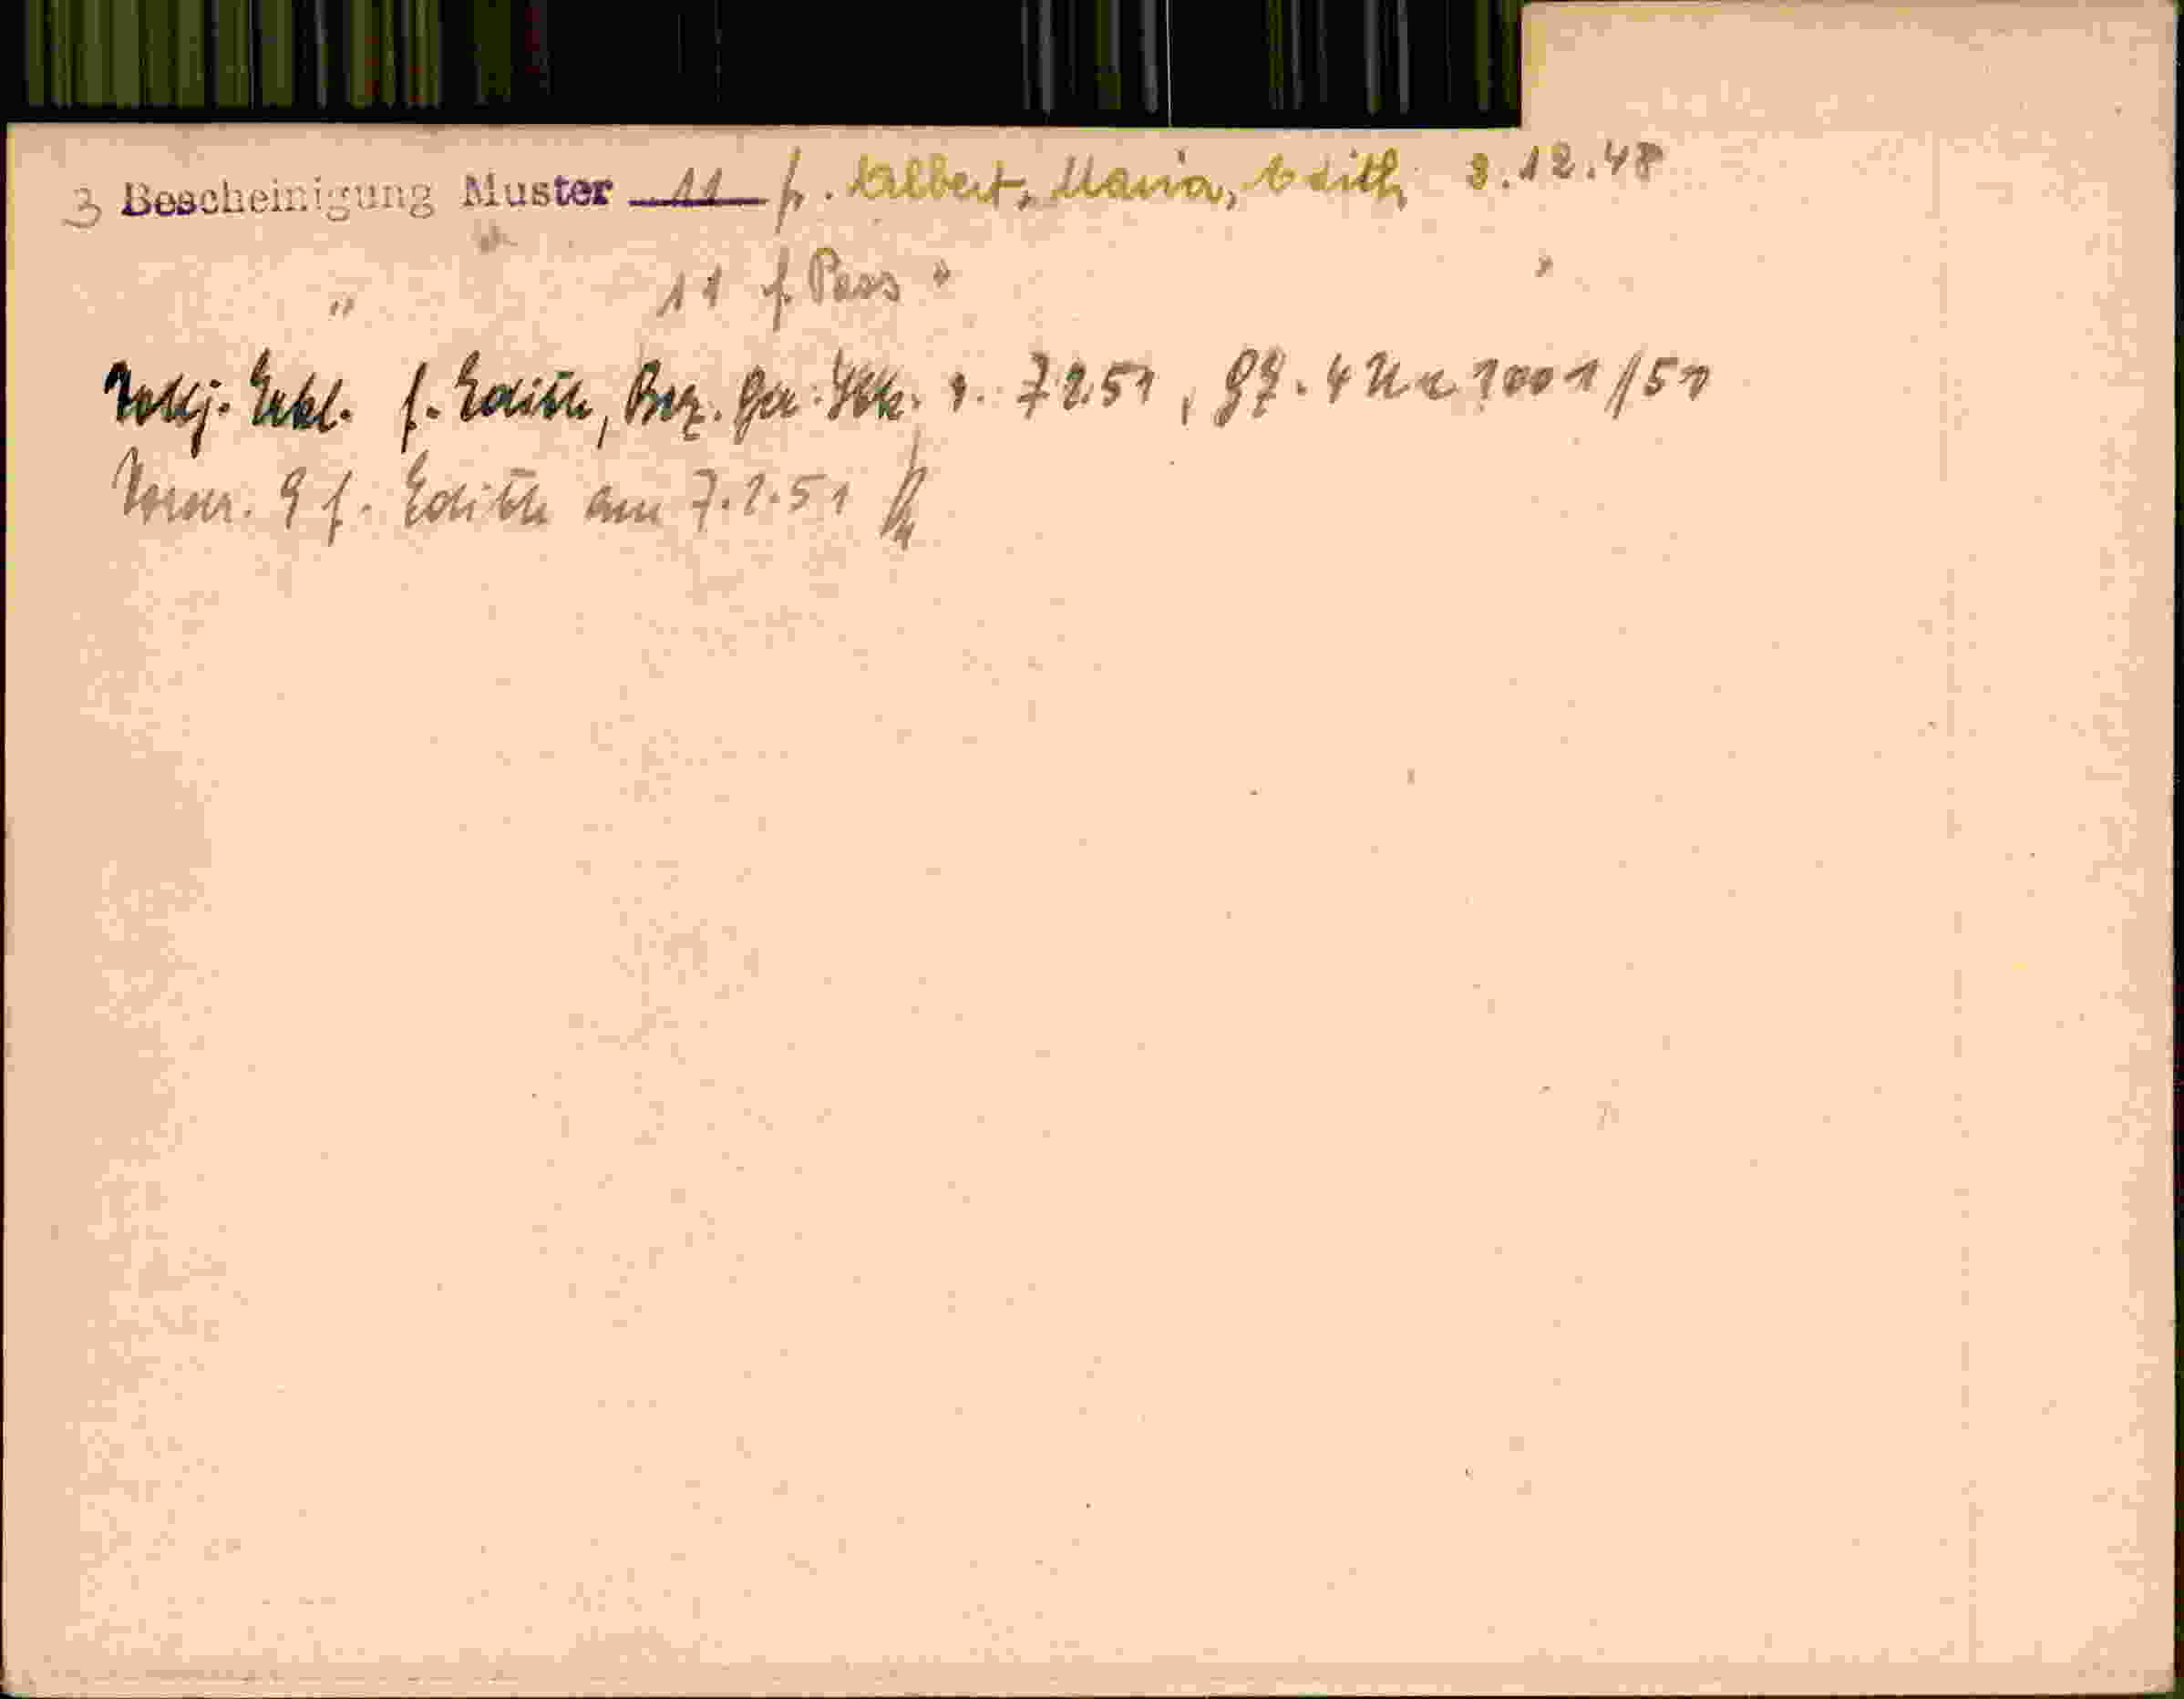 3 Bescheinigung Muster 11 f. Albert, Maria, Edith 3.12.48
" 11 f. Pass " "
Vollj. Erkl. f. Edith, Bez. Ger. v. 7.2.51, GZ. 4 Nc 1001/51
9 f. Edith am 7.2.51